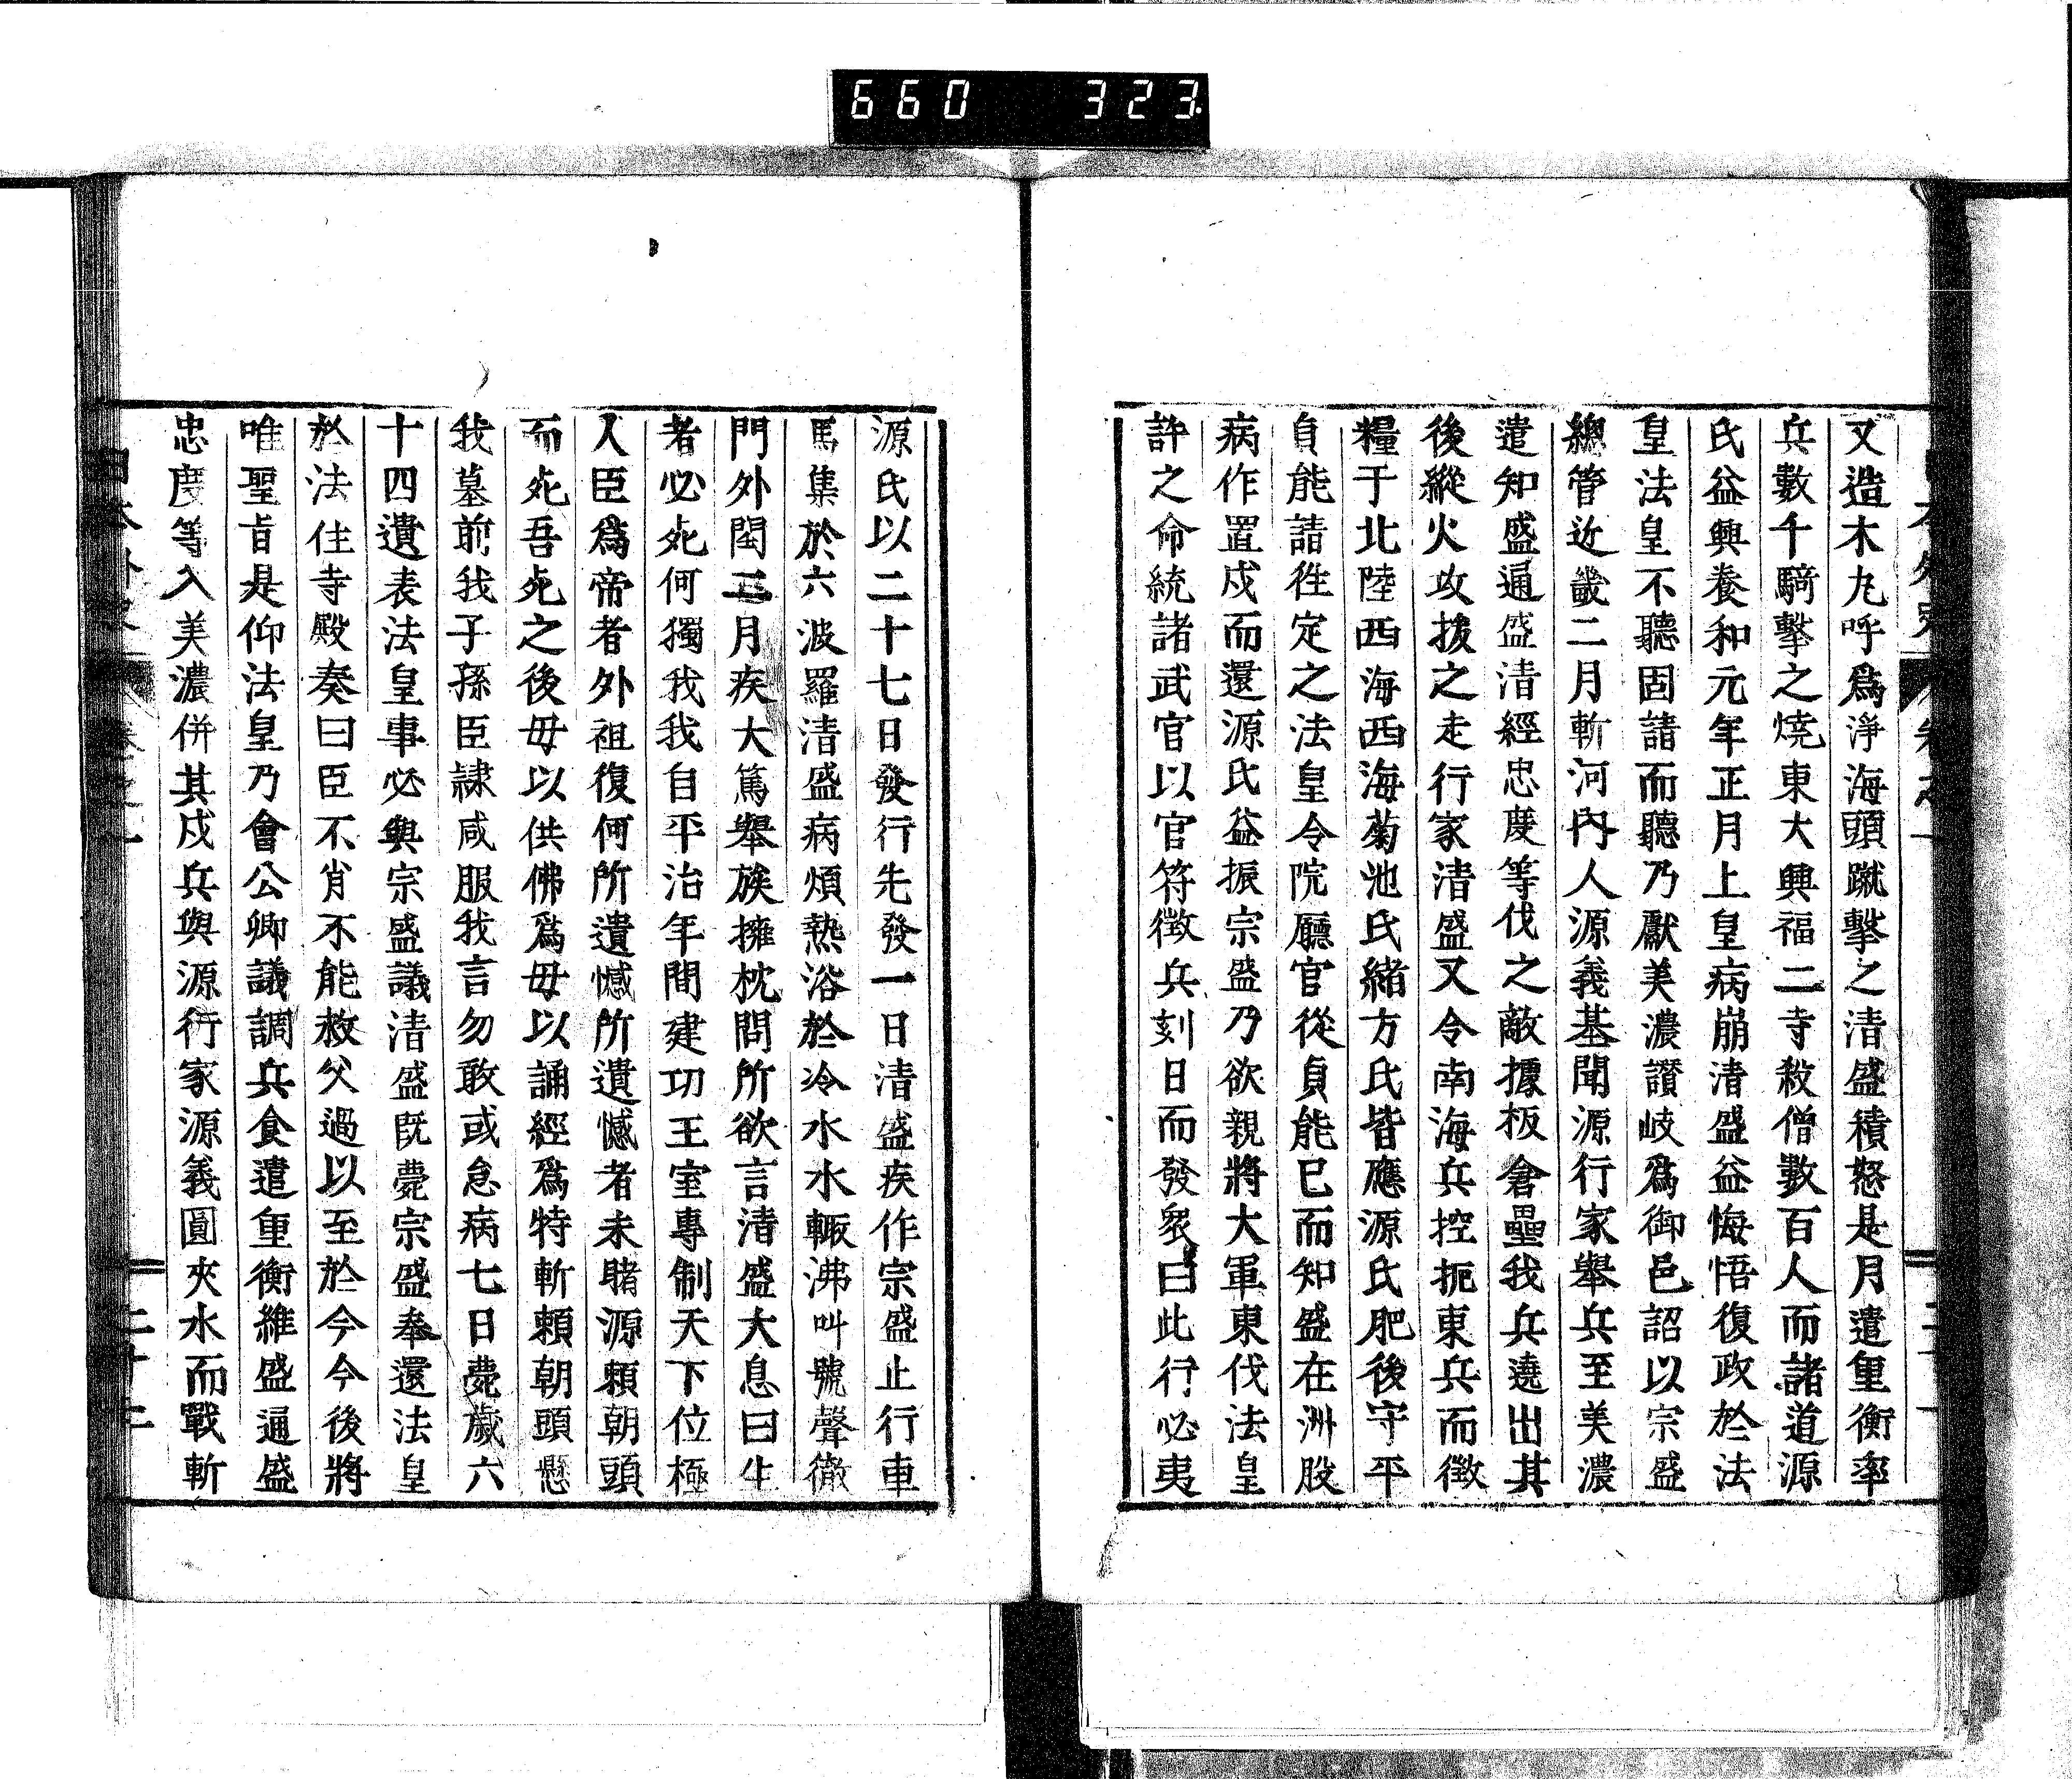 660 323
又造木丸呼爲淨海頭蹴擊之淸盛積怒是月遣重衡率
兵數千騎擊之燒東大興福二寺殺僧數百人而諸道源
氏益興養和元年正月上皇病崩淸盛益悔悟復政於法
皇法皇不聽固請而聽乃獻美濃讃岐爲御邑詔以宗盛
總管近畿二月斬河內人源義基聞源行家舉兵至美濃
遣知盛通盛淸經忠度等伐之敵據板倉壘我兵遶出其
後縱火攻拔之走行家淸盛又令南海兵控扼東兵而徵
糧于北陸西海西海菊池氏緒方氏皆應源氏肥後守平
貞能請徃定之法皇令院廳官從貞能已而知盛在洲股
病作置戍而還源氏益振宗盛乃欲親將大軍東伐法皇
許之命統諸武官以官符徵兵刻日而發衆曰此行必夷
源氏以二十七日發行先發一日淸盛疾作宗盛止行車
馬集於六波羅淸盛病煩熱浴於冷水水輙沸叫號聲徹
門外閏二月疾大篤舉族擁枕問所欲言淸盛大息曰生
者必死何獨我我自平治年間建功王室專制天下位極
人臣爲帝者外祖復何所遺憾所遺憾者未睹源賴朝頭
而死吾死之後毋以供佛爲毋以誦經爲特斬賴朝頭懸
我墓前我子孫臣隷咸服我言勿敢或怠病七日薨歲六
十四遺表法皇事必與宗盛議淸盛既薨宗盛奉還法皇
於法住寺殿奏曰臣不肖不能救父過以至於今今後將
唯聖旨是仰法皇乃會公卿議調兵食遣重衡維盛通盛
忠度等入美濃併其戍兵與源行家源義圓夾水而戰斬
日本外史 卷之一 二十二